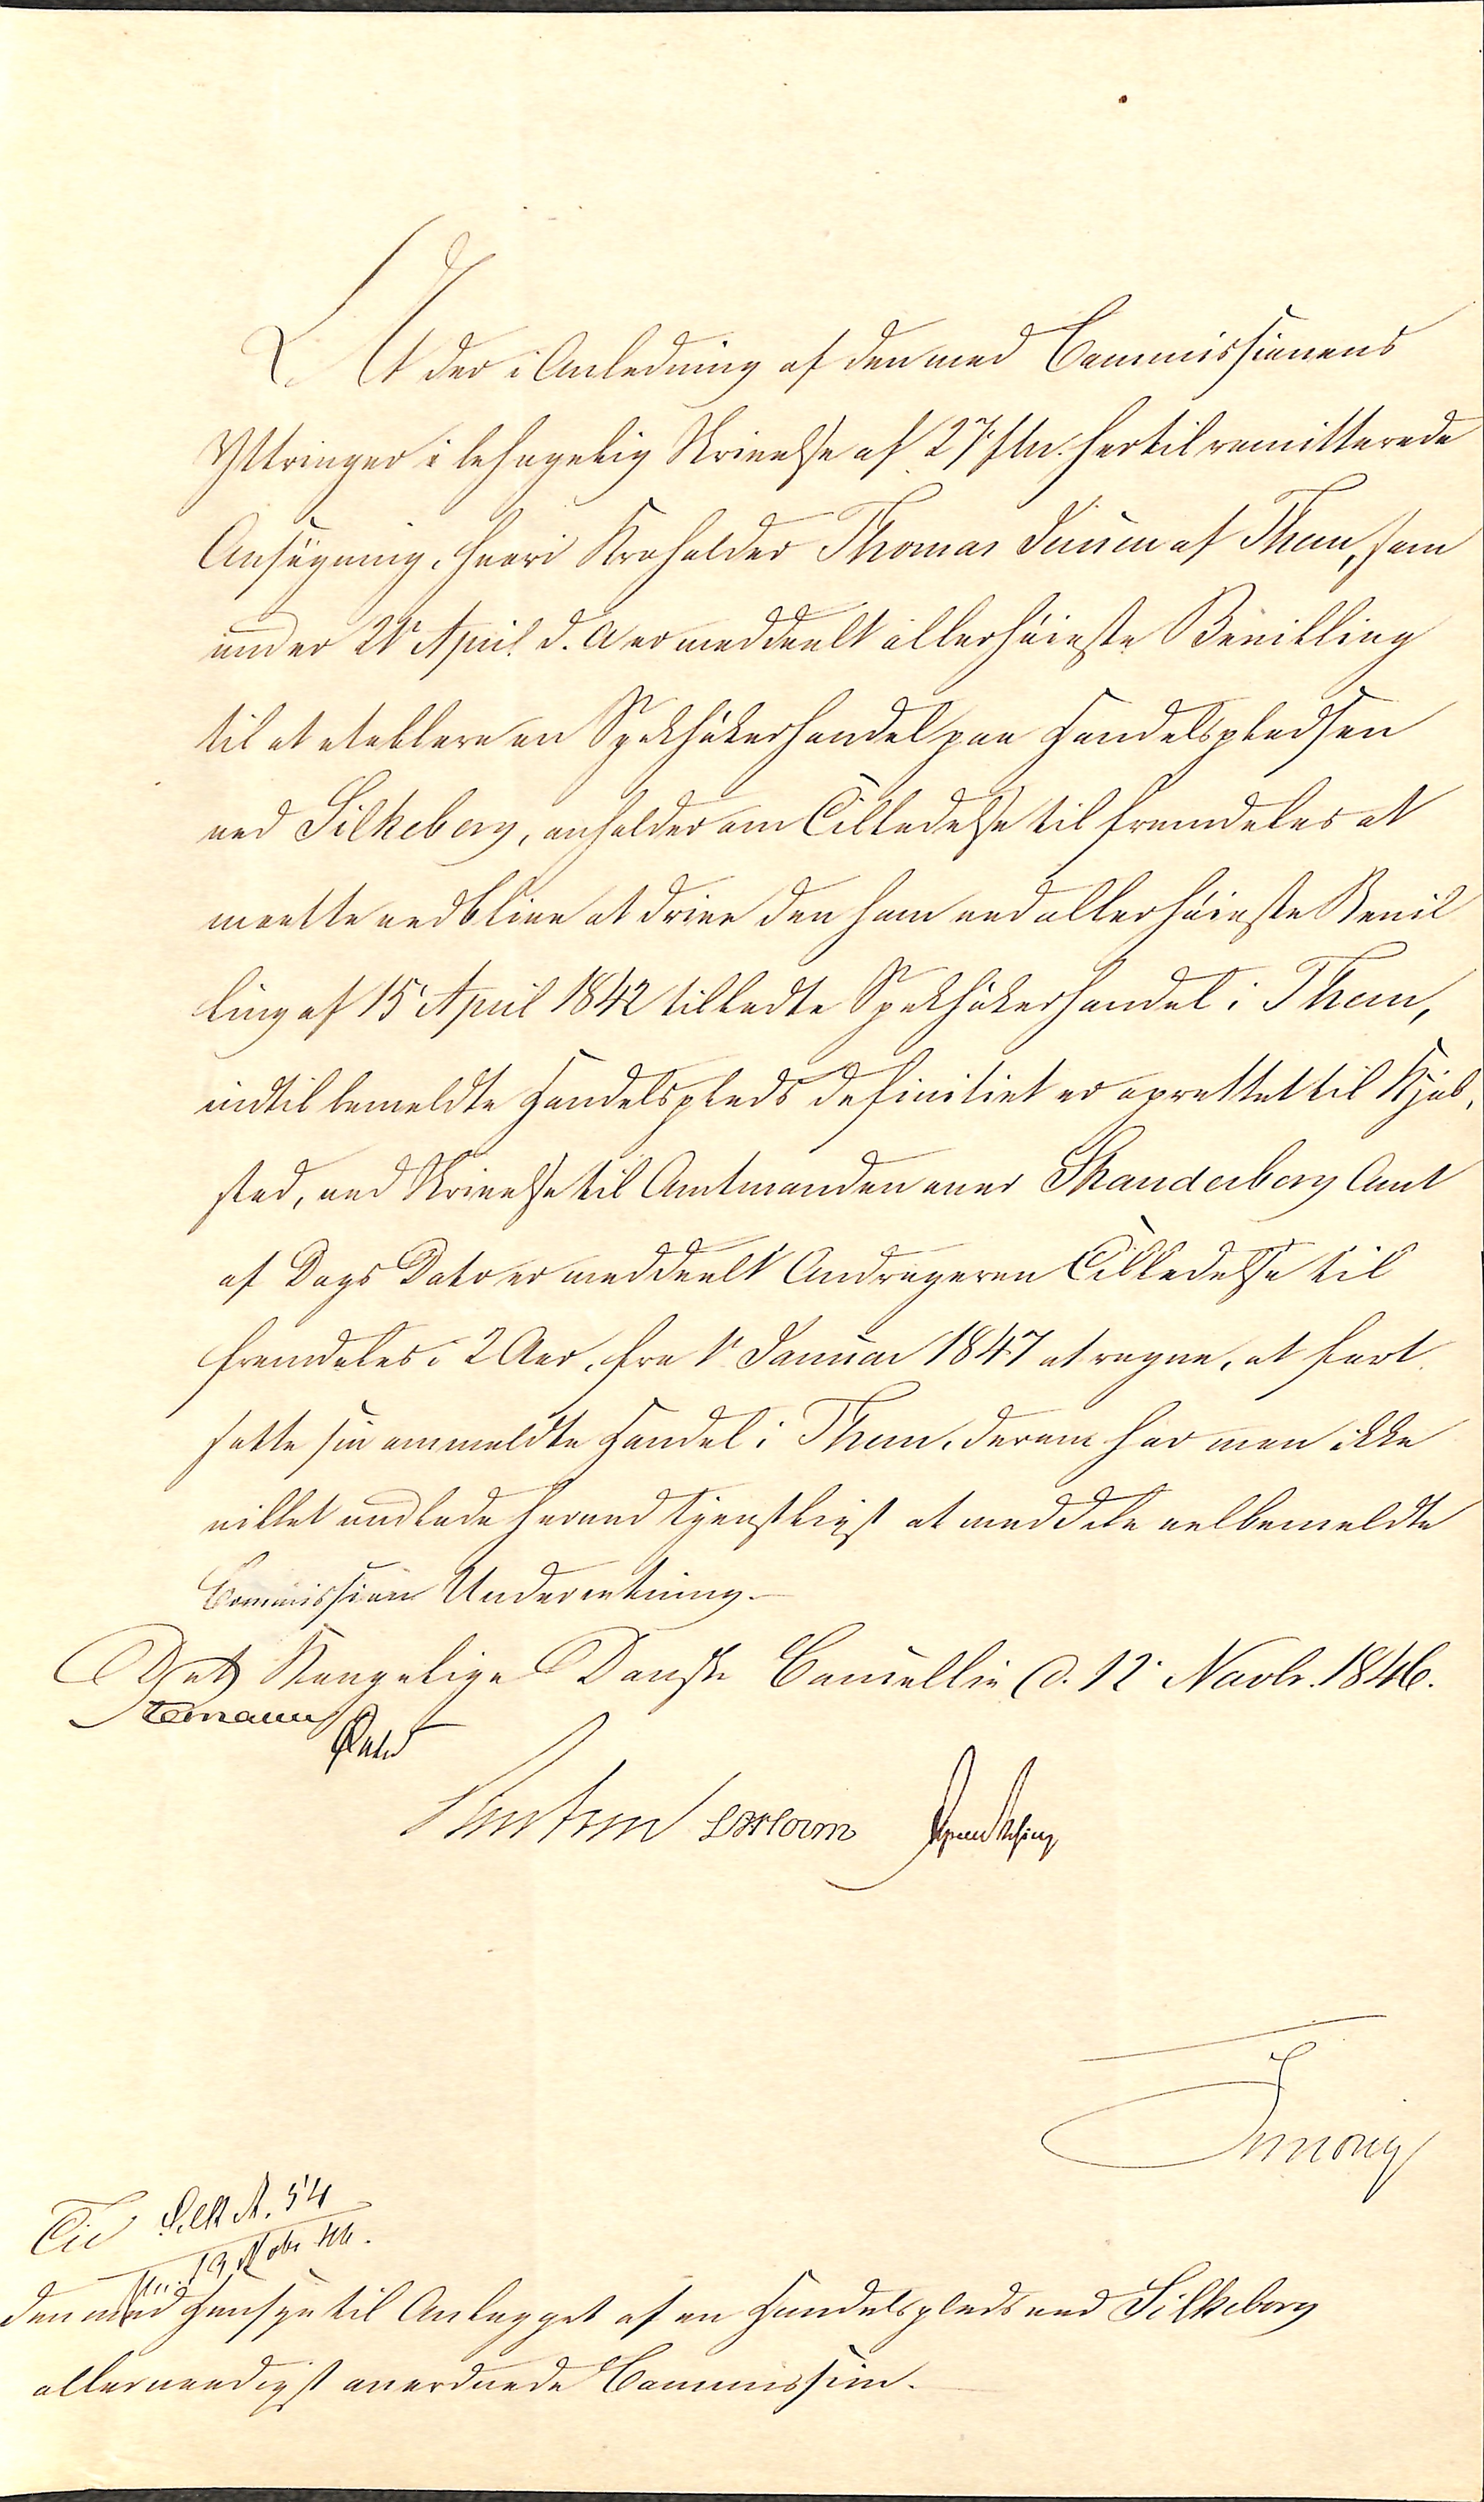 At der i Anledning af den med Commissionens
Yttringer i behagelig Skrivelse af 27 f.M. hertil remitterede
Ansøgning, hvori Kroholder Thomas Juul af Them, som
under 21 April d. A. er meddeelt allerhøieste Bevilling
til at etablere en Spekhøkerhandel paa Handelspladsen
ved Silkeborg, anholder om Tilladelse til fremdeles at
maatte vedblive at drive den ham ved allerhøieste Bevil
ling af 15 April 1842 tilladte Spekhøkerhandel i Them,
indtil bemeldte Handelsplads definitivt er oprettet til Kjøb,
sted, ved Skrivelse til Amtmanden over Skanderborg Amt
af Dags Dato er meddeelt Andrageren Tilladelse til
fremdeles i 2 Aar, fra 1 Januar 1847 at regne, at fort
sætte sin ommeldte Handel i Them, derom har man ikke
villet undlade herved tjenstligst at meddele velbemeldte
Commission Underretning.
Det Kongelige Danske Cancellie d. 12 Novbr. 1846.
Stemann
Ørsted
Til Silk N. 54
19 Nobr 46.
den med Hensyn til Anlægget af en Handelsplads ved Silkeborg
allernaadigst anordnede Commission.